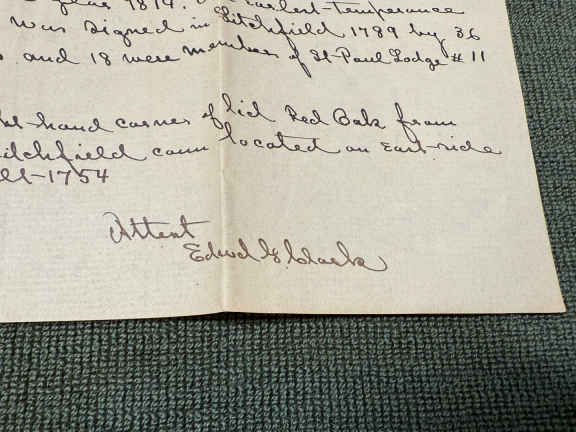 year 1819. earliest temperance
was signed in Litchfield 1789 by 36
and 18 were members of St Paul Lodge # 11
hand corner of lid Red Oak from
Litchfield located on East side
1754
Attest
Edwd G. Clark